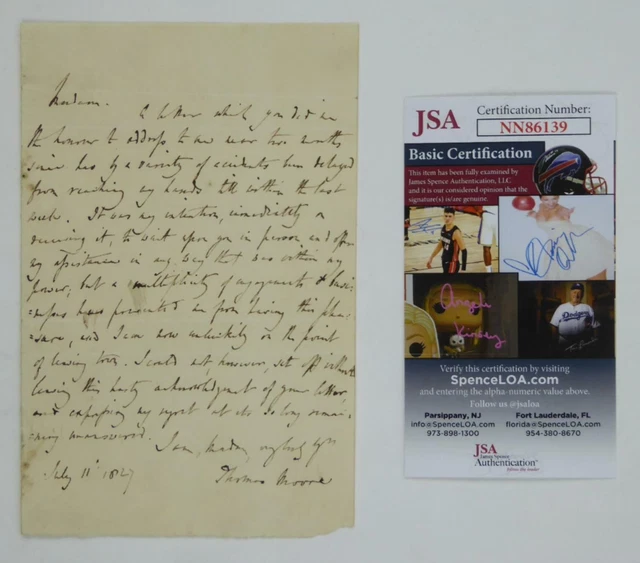 Madam.
A letter which you did me
the honour to address to me near two months
since has by a variety of accidents been delayed
from reaching my hands till within the last
week. It was my intention, immediately on
receiving it, to wait upon you in person and offer
my assistance in any way that was within my
power, but a multiplicity of engagements & busi-
-ness have prevented me from having this plea-
-sure, and I am now unluckily on the point
of leaving town. I could not however, set off without
leaving this hasty acknowledgment of your letter,
and expressing my regret at its so long remai-
-ning unanswered.
I am, Madam, very truly yrs
July 11 1827
Thomas Moore
JSA
Certification Number:
NN86139
Basic Certification
This item has been fully examined by
James Spence Authentication, LLC
and it is our considered opinion that the
signature(s) is/are genuine.
Angela
Kinsey
Dodgers
Verify this certification by visiting
SpenceLOA.com
and entering the alpha-numeric value above.
Follow us @jsaloa
Parsippany, NJ
info@SpenceLOA.com
973-898-1300
Fort Lauderdale, FL
florida@SpenceLOA.com
954-380-8670
JSA
James Spence
Authentication